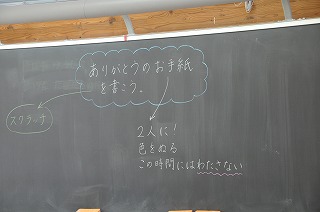 ありがとうのお手紙
を書こう。
スクラーナ
2人に!
色をぬる
この時間にはわたさない